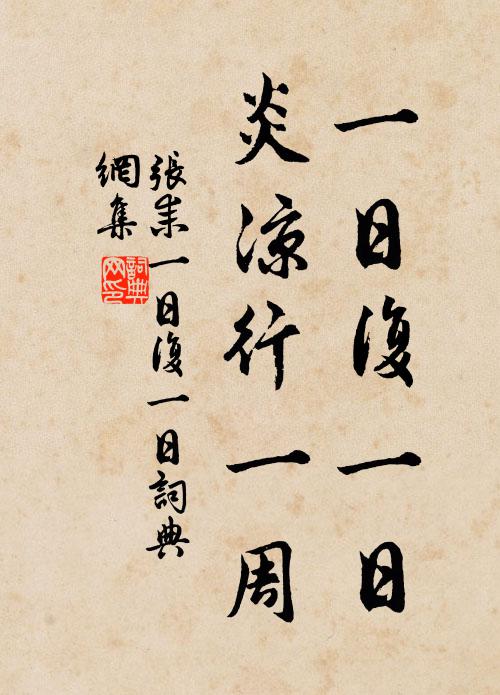 一日復一日
炎涼行一周
張耒一日復一日詞典
網集
詞典
网印